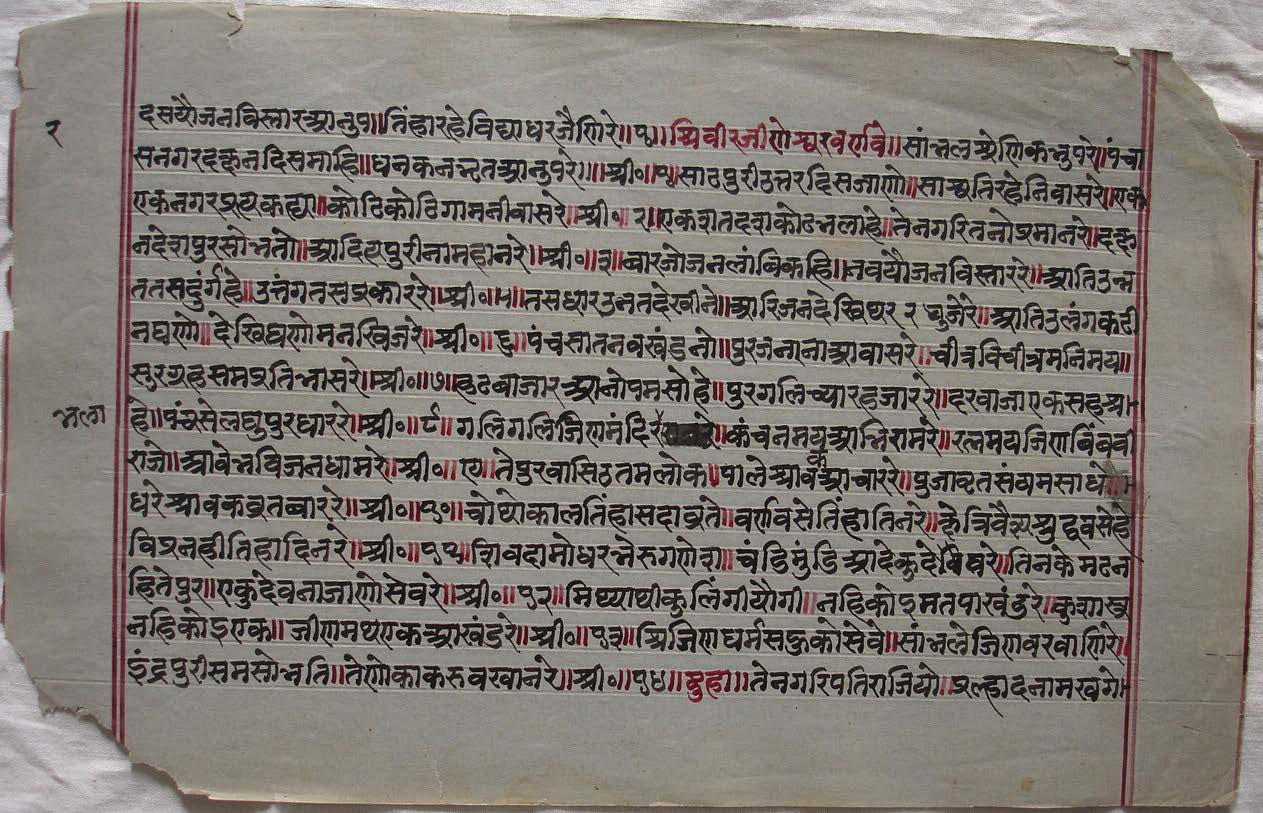 २
दसयौजनविस्तारआनुप॥तिंहारहेविद्याधरजैणिरे॥१॥श्रिवीरजीणेश्वरवर्णवि॥सांभलश्रेणिकभुपरे॥पंचा
सनगरदक्षनदिसमाहि॥धनकनभृतआनुपरे॥॥श्री॰॥१॥साठपुरीउत्तरदिसजाणो॥साश्वतिरहेनिवासरे॥एक
एकनगरप्रत्यकह्या॥कोठिकोठिगामनीवासरे॥श्री॰॥२॥एकशतदशकोठभलाहे॥तेनगरितनोप्रमानरे॥दक्ष
नदेशपुरसोभतो॥आदित्यपुरीनाममहानरे॥श्री॰॥३॥बारजोजनलांबिकहि॥नवयौजनविस्ताररे॥आतिउन्न
ततसदुर्गहे॥उत्तंगतसप्रकाररे॥श्री॰॥५॥तसधारउन्नतदेखीने॥आरिजनदेखिथर२धुजेरे॥आतिउलंगकठी
नघणो॥देखिघणोमनखिजरे॥श्री॰॥६॥पंचसातनवखंडनो॥पुरजनानाआवासरे॥चीत्रविचीत्रमनिमय॥
सुरग्रहसमप्रतिभासरे॥श्री॰॥७॥हठबाजारआनोपमसोहे॥पुरगलिच्यारहजाररे॥दरवाजाएकसहश्र
भला
हे॥पंचसेलघुपुरधाररे॥श्री॰॥८॥गलिगलिजिणमंदिर॥कंचनमयआभिरामरे॥रत्नमयजिणबिंबबी
राजे॥आवेभविजनधामरे॥श्री॰॥९॥तेपुरवासिठतमलोक॥पालेश्रावकआचाररे॥पुजावृतसंयमसाधे॥
धरेश्रावकव्रतबाररे॥श्री॰॥१०॥चोथोकालतिंहासदाव्रते॥वर्णविसेतिंहातिनरे॥क्षेत्रिवैश्यश्रुद्रवसेहे
विप्रनहीतिहादिनरे॥श्री॰॥११॥शिवदामोधरभेरुगणेश॥चंडिमुंडिआदेकुदेविघरे॥तिनकेमठन
हितेपुर॥एकुदेवनाजाणोसेवरे॥श्री॰॥१२॥मिथ्याथीकुलिंगीयौगी॥नहिकोइमतपाखंडरे॥कुशास्त्र
नहिकोइएक॥जीणमथएकआखंडरे॥श्री॰॥१३॥श्रिजिणधर्मसहुकोसेवे॥सांभलेजिणवरवाणिरे॥
इंद्रपुरीसमसोभति॥तेणोकाकरुवखानरे॥श्री॰॥१४॥दुहा॥तेनगरिपतिराजियो॥प्रल्हादनामखगे